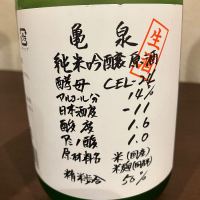 亀泉
生酒
純米吟醸原酒
酵母 CEL-24
アルコール分 14%
日本酒度 -11
酸度 1.6
アミノ酸 1.0
原材料名 米(国産)
米麹(国産米)
精米歩合 50%